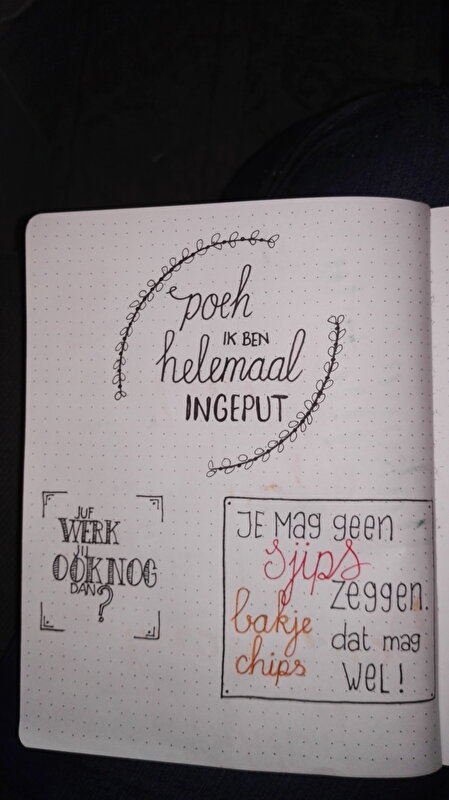 poeh
IK BEN
helemaal
INGEPUT
JUF
WERK
JIJ
OOK NOG
DAN?
JE MAG geen
sjips
zeggen.
bakje
chips
dat mag
WEL!